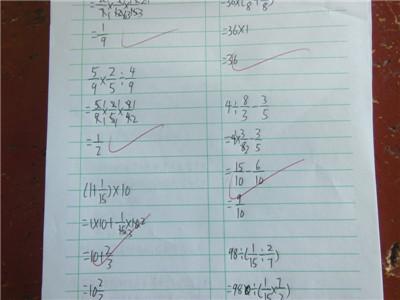 = 1/9
5/9 × 2/5 ÷ 4/9
= 5/9 × 2/5 × 9/4
= 1/2
(1+1/15)×10
=1×10+1/15×10
=10+2/3
=10 2/3
=36×1
=36
4÷8/3-3/5
=4×3/8-3/5
=15/10-6/10
=9/10
98÷(1/15÷2/7)
=98÷(1/15×7/2)